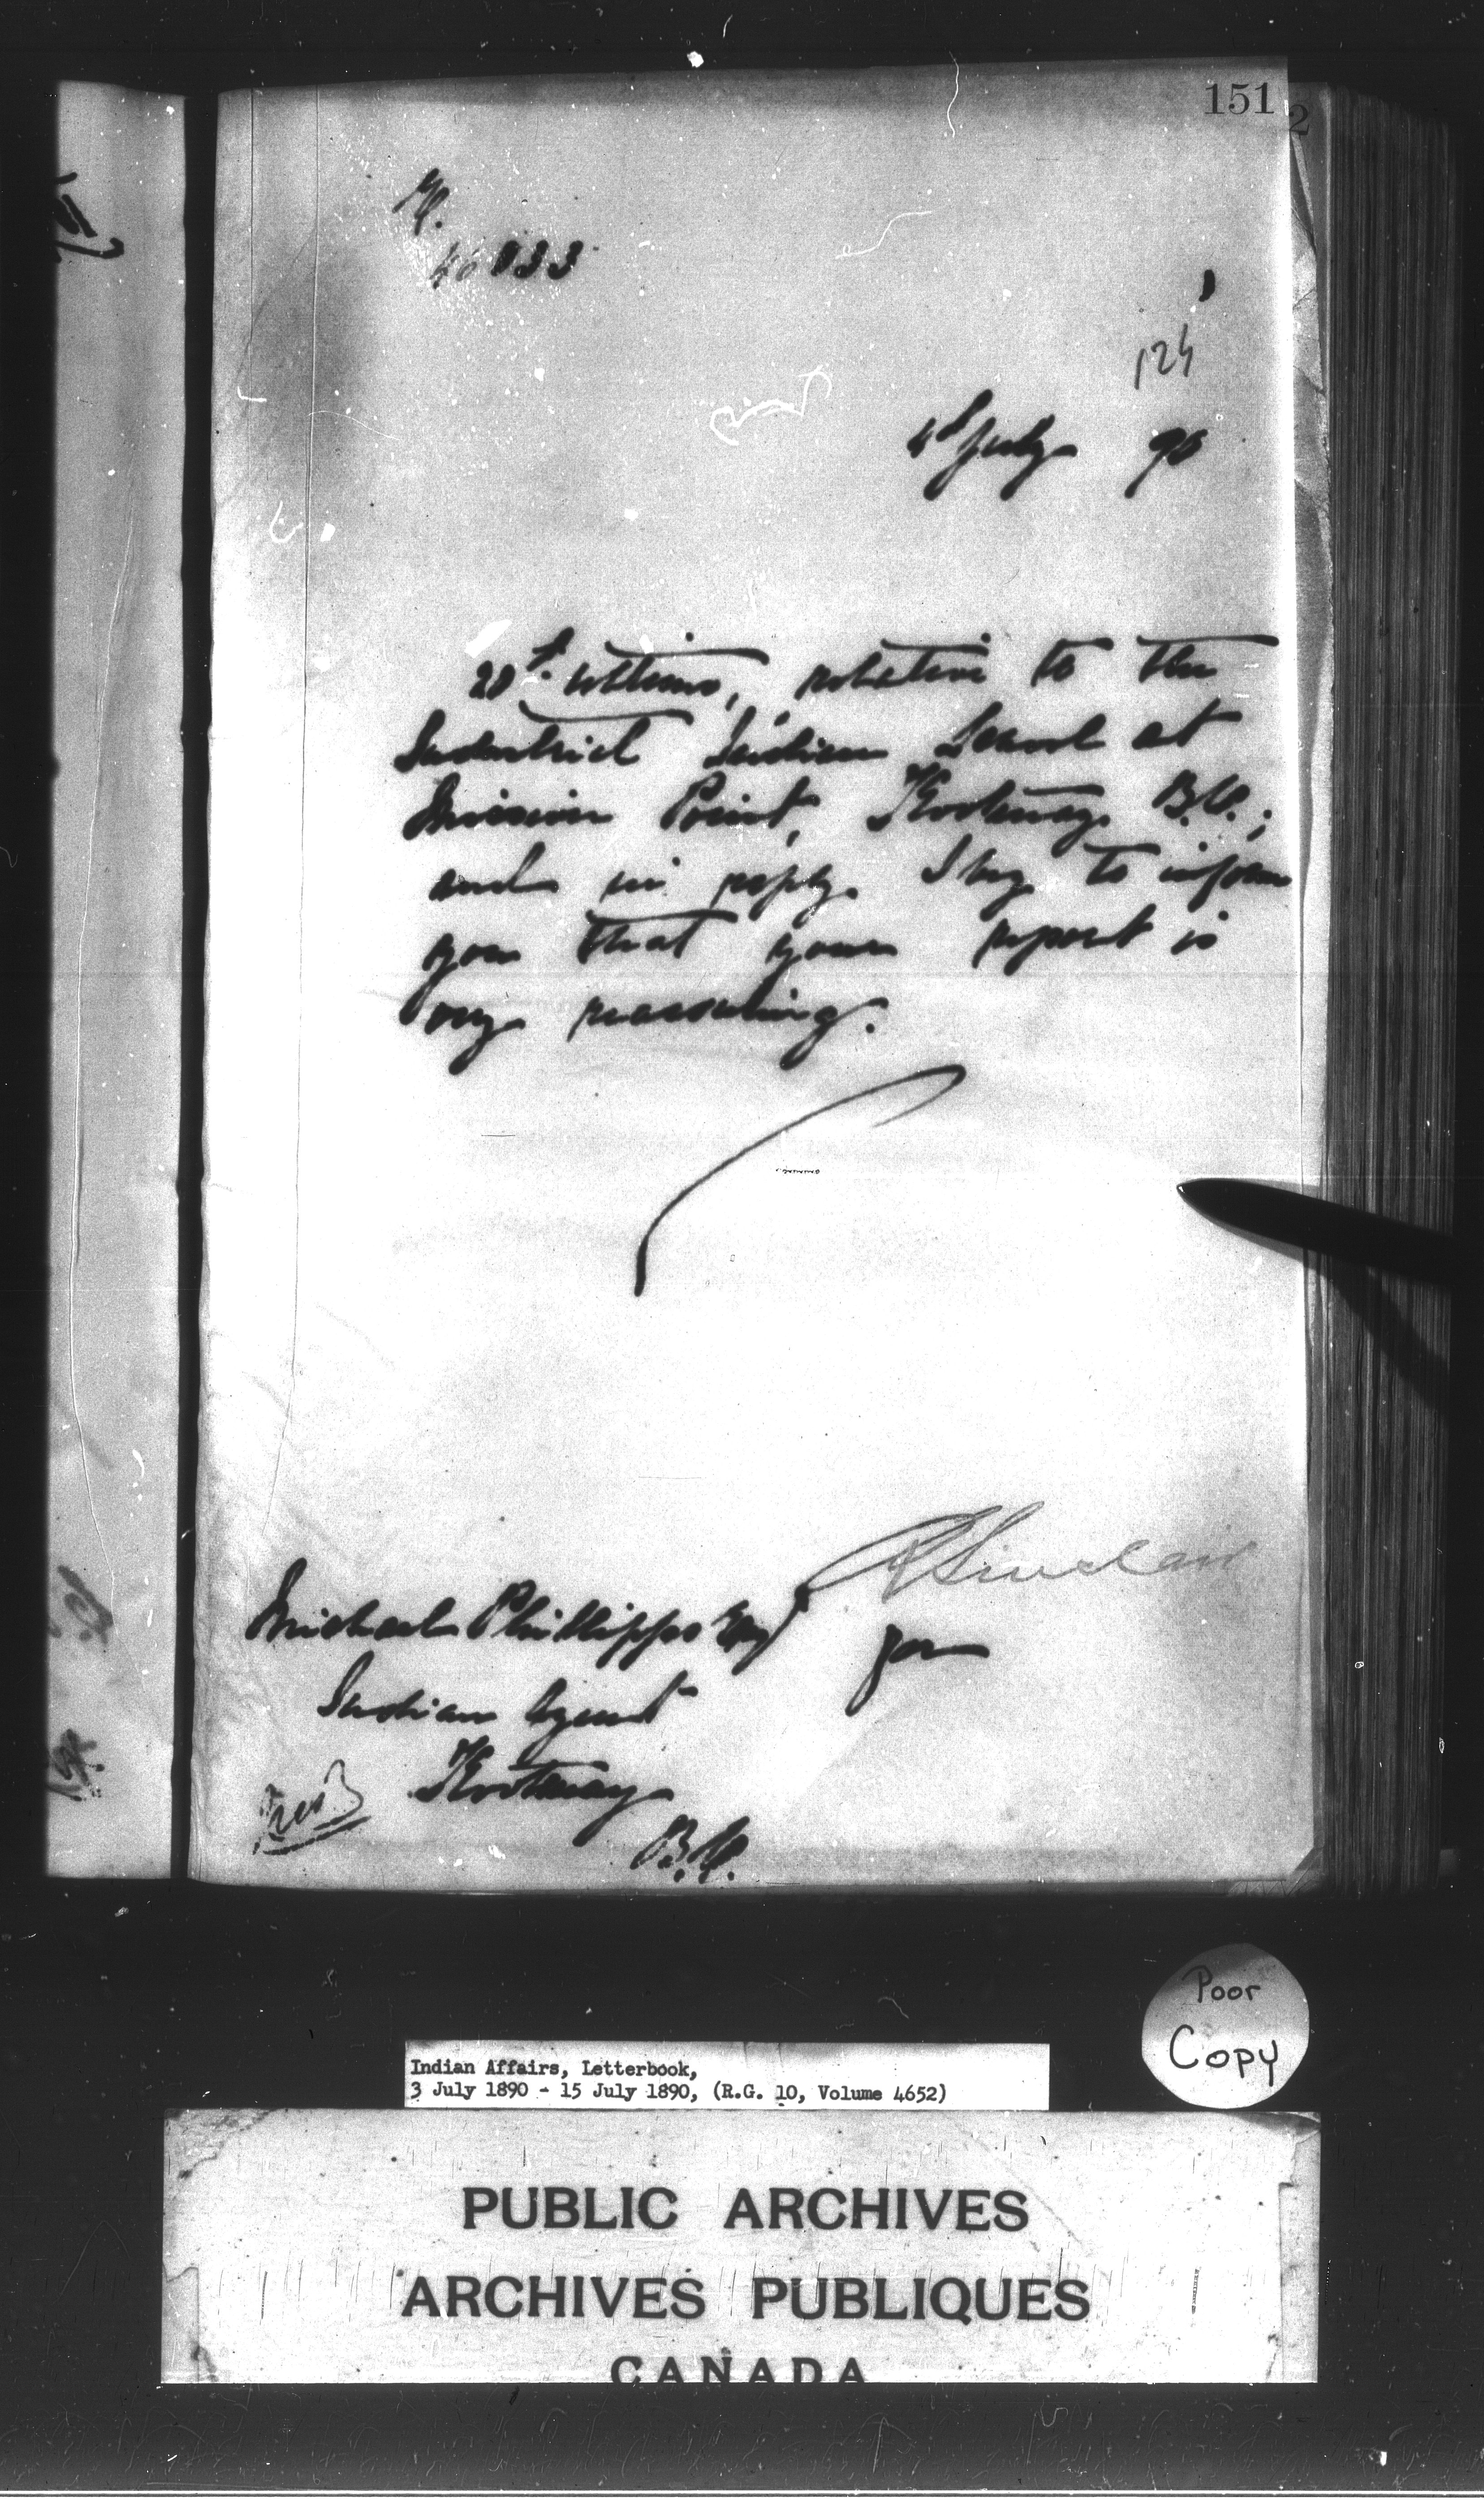 151
2
124
4th July 90
ultimo, relative to the
Industrial Indian School at
Mission Point, Kootenay B.C.;
and in reply I beg to inform
you that your report is
very reassuring.
R Sinclair
for
Michael Phillipps Esq
Indian Agent
Kootenay
B.C.
Poor
Copy
Indian Affairs, Letterbook,
3 July 1890 - 15 July 1890, (R.G. 10, Volume 4652)
PUBLIC ARCHIVES
ARCHIVES PUBLIQUES
CANADA